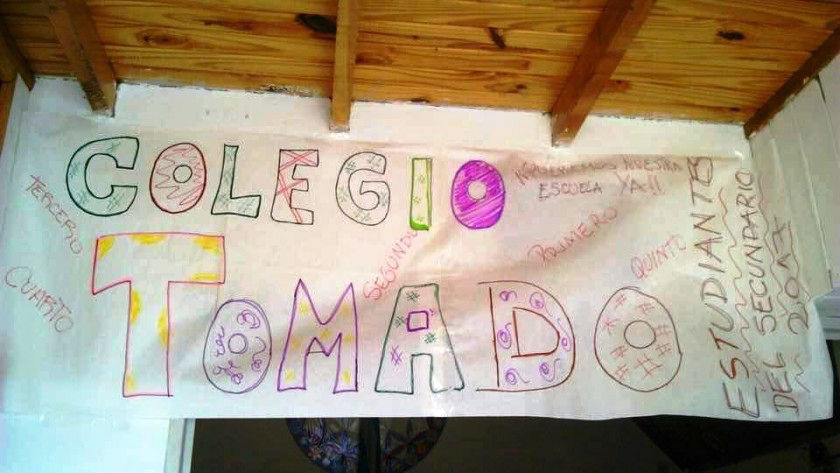 COLEGIO
NUESTRA
ESCUELA YA!!
TOMADO
TERCERO
CUARTO
SEGUNDO
PRIMERO
QUINTO
ESTUDIANTES
DEL SECUNDARIO
DEL 2017